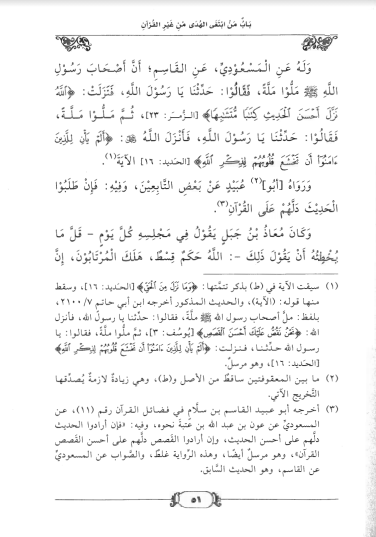 بَابُ مَنِ ابْتَغَى الهُدَى مِنْ غَيْرِ القُرْآنِ
وَلَهُ عَنِ الْمَسْعُودِيِّ، عَنِ القَاسِمِ؛ أَنَّ أَصْحَابَ رَسُولِ
اللهِ ﷺ مَلُّوا مَلَّةً، فَقَالُوا: حَدِّثْنَا يَا رَسُولَ اللهِ، فَنَزَلَتْ: ﴿اللَّهُ
نَزَّلَ أَحْسَنَ الْحَدِيثِ كِتَابًا مُتَشَابِهًا﴾ [الزُّمَر: ٢٣]، ثُمَّ مَلُّوا مَلَّةً،
فَقَالُوا: حَدِّثْنَا يَا رَسُولَ اللهِ، فَأَنْزَلَ اللهُ: ﴿أَلَمْ يَأْنِ لِلَّذِينَ
ءَامَنُوا أَن تَخْشَعَ قُلُوبُهُمْ لِذِكْرِ اللَّهِ﴾ [الحديد: ١٦] الآيَةَ(١).
وَرَوَاهُ [أَبُو](٢) عُبَيْدٍ عَنْ بَعْضِ التَّابِعِينَ، وَفِيهِ: فَإِنْ طَلَبُوا
الْحَدِيثَ دَلَّهُمْ عَلَى القُرْآنِ(٣).
وَكَانَ مُعَاذُ بْنُ جَبَلٍ يَقُولُ فِي مَجْلِسِهِ كُلَّ يَوْمٍ - قَلَّ مَا
يُخْطِئُهُ أَنْ يَقُولَ ذَلِكَ -: اللهُ حَكَمٌ قِسْطٌ، هَلَكَ الْمُرْتَابُونَ، إِنَّ
(١) سيقت الآية في (ط) بذكر تتمَّتها: ﴿وَمَا نَزَلَ مِنَ الْحَقِّ﴾ [الحديد: ١٦]، وسقط
منها قوله: (الآية)، والحديث المذكور أخرجه ابن أبي حاتم ٢١٠٠/٧
بلفظ: ملَّ أصحاب رسول الله ﷺ ملَّةً، فقالوا: حدِّثنا يا رسول الله، فأنزل
الله: ﴿نَحْنُ نَقُصُّ عَلَيْكَ أَحْسَنَ الْقَصَصِ﴾ [يُوسُف: ٣]، ثمَّ ملُّوا ملَّةً، فقالوا: يا
رسول الله حدِّثنا، فنزلت: ﴿أَلَمْ يَأْنِ لِلَّذِينَ ءَامَنُوا أَن تَخْشَعَ قُلُوبُهُمْ لِذِكْرِ اللَّهِ﴾
[الحديد: ١٦]، وهو مرسلٌ.
(٢) ما بين المعقوفتين ساقطٌ من الأصل و(ط)، وهي زيادةٌ لازمةٌ يُصدِّقها
التَّخريج الآتي.
(٣) أخرجه أبو عبيد القاسم بن سلَّام في فضائل القرآن رقم (١١)، عن
المسعوديِّ عن عون بن عبد الله بن عُتبةَ نحوه، وفيه: «فإن أرادوا الحديث
دلَّهم على أحسن الحديث، وإن أرادوا القَصص دلَّهم على أحسن القَصص
القرآن»، وهو مرسلٌ أيضًا، وهذه الرِّواية غلطٌ، والصَّواب عن المسعوديِّ
عن القاسم، وهو الحديث السَّابق.
٥٦